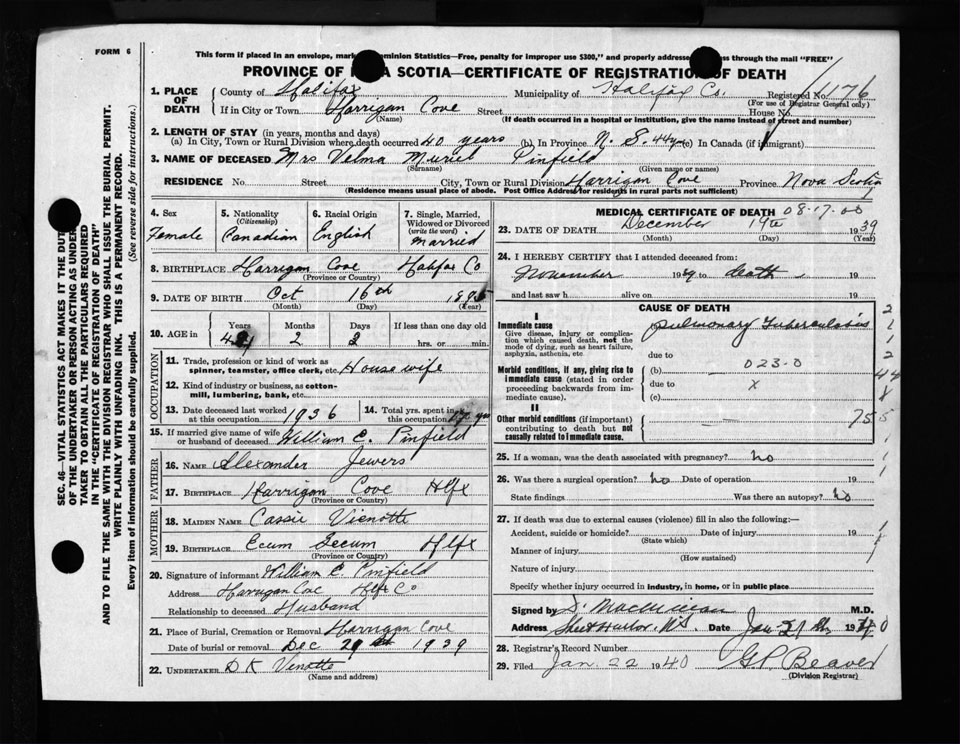 FORM 6
This form if placed in an envelope, mar Dominion Statistics—Free, penalty for improper use $300," and properly addresse ss through the mail "FREE"
PROVINCE OF A SCOTIA—CERTIFICATE OF REGISTRATION OF DEATH
1. PLACE OF DEATH County of Halifax Municipality of Halifax Co. Registered No. 1176
(For use of Registrar General only)
If in City or Town Harrigan Cove Street House No.
(Name) (If death occurred in a hospital or institution, give the name instead of street and number)
2. LENGTH OF STAY (in years, months and days)
(a) In City, Town or Rural Division where death occurred 40 years (b) In Province N. S. 44y (c) In Canada (if immigrant)
3. NAME OF DECEASED Mrs Velma Muriel Pinfield
(Surname) (Given name or names)
RESIDENCE No. Street City, Town or Rural Division Harrigan Cove Province Nova Scotia
(Residence means usual place of abode. Post Office Address for residents in rural parts not sufficient)
4. Sex Female
5. Nationality (Citizenship) Canadian
6. Racial Origin English
7. Single, Married, Widowed or Divorced (write the word) Married
8. BIRTHPLACE Harrigan Cove Halifax Co
(Province or Country)
9. DATE OF BIRTH Oct 16th 1895
(Month) (Day) (Year)
10. AGE in Years Months Days If less than one day old
44 2 3 hrs. or min.
OCCUPATION
11. Trade, profession or kind of work as spinner, teamster, office clerk, etc. House wife
12. Kind of industry or business, as cotton-mill, lumbering, bank, etc.
13. Date deceased last worked at this occupation 1936
14. Total yrs. spent in this occupation yrs
15. If married give name of wife or husband of deceased William E. Pinfield
FATHER
16. NAME Alexander Jewers
17. BIRTHPLACE Harrigan Cove Hlfx
(Province or Country)
MOTHER
18. MAIDEN NAME Cassie Vienotte
19. BIRTHPLACE Ecum Secum Hlfx
(Province or Country)
20. Signature of informant William E. Pinfield
Address Harrigan Cove Hlfx Co
Relationship to deceased Husband
21. Place of Burial, Cremation or Removal Harrigan Cove
Date of burial or removal Dec 1939
22. UNDERTAKER D K Vienotte
(Name and address)
MEDICAL CERTIFICATE OF DEATH 08-17-00
23. DATE OF DEATH December 19th 1939
(Month) (Day) (Year)
24. I HEREBY CERTIFY that I attended deceased from:
November 1939 to death 19
and last saw h alive on 19
CAUSE OF DEATH
I
Immediate cause pulmonary Tuberculosis
Give disease, injury or complication which caused death, not the mode of dying, such as heart failure, asphyxia, asthenia, etc.
due to
Morbid conditions, if any, giving rise to immediate cause (stated in order proceeding backwards from immediate cause).
(b) 023-0
due to x
(c)
II
Other morbid conditions (if important) contributing to death but not causally related to immediate cause.
75
25. If a woman, was the death associated with pregnancy? no
26. Was there a surgical operation? no Date of operation 19
State findings Was there an autopsy? no
27. If death was due to external causes (violence) fill in also the following:—
Accident, suicide or homicide? Date of injury 19
(State which)
Manner of injury
(How sustained)
Nature of injury
Specify whether injury occurred in industry, in home, or in public place
Signed by M.D.
Address Sheet Harbor. N.S. Date Jan 1940
28. Registrar's Record Number
29. Filed Jan 22 1940 G P Beaver
(Division Registrar)
SEC. 46—VITAL STATISTICS ACT MAKES IT THE DUT
OF THE UNDERTAKER OR PERSON ACTING AS UNDER-
TAKER TO OBTAIN ALL THE PARTICULARS REQUIRED
IN THE "CERTIFICATE OF REGISTRATION OF DEATH"
AND TO FILE THE SAME WITH THE DIVISION REGISTRAR WHO SHALL ISSUE THE BURIAL PERMIT.
WRITE PLAINLY WITH UNFADING INK. THIS IS A PERMANENT RECORD.
Every item of information should be carefully supplied. (See reverse side for instructions.)